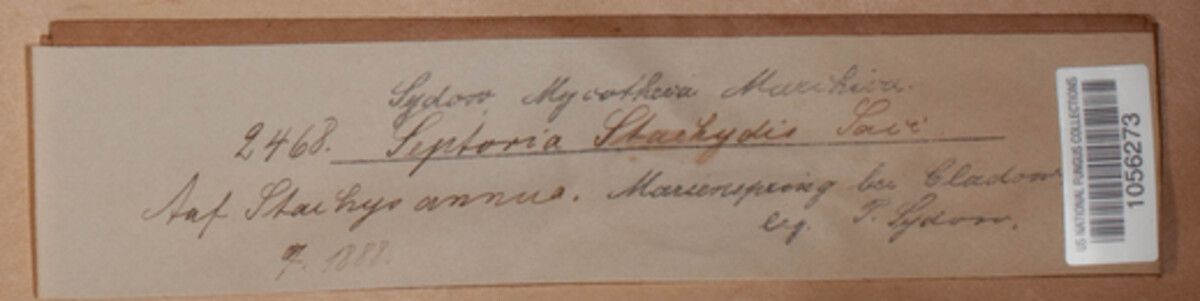 Sydow Mycotheca Marchica.
2468. Septoria Stachydis Sacc.
Auf Stachys annua. Marienspring bei Cladow
leg. P. Sydow.
7. 1888.
US NATIONAL FUNGUS COLLECTIONS
1056273